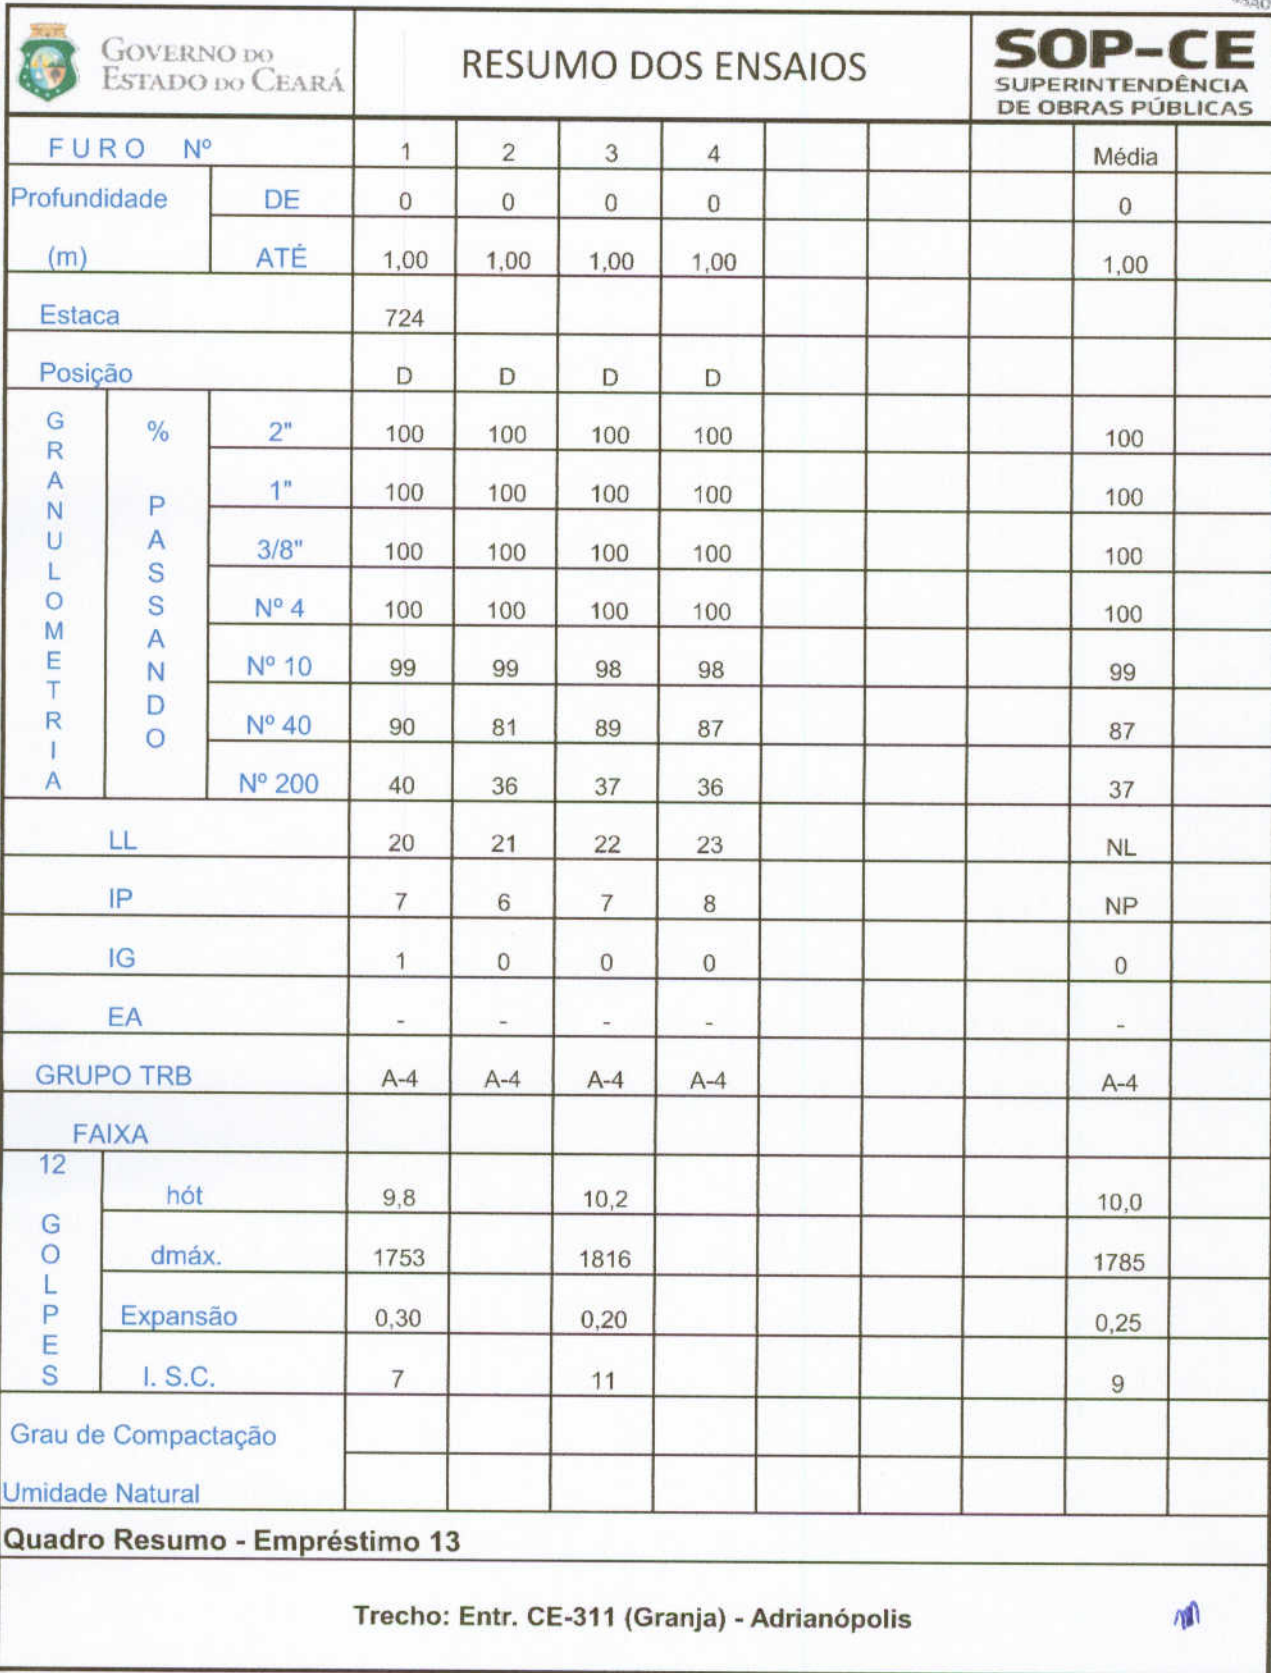 GOVERNO DO
ESTADO DO CEARÁ
RESUMO DOS ENSAIOS
SOP-CE
SUPERINTENDÊNCIA
DE OBRAS PÚBLICAS
FURO Nº 1 2 3 4 Média
Profundidade DE 0 0 0 0 0
(m) ATÉ 1,00 1,00 1,00 1,00 1,00
Estaca 724
Posição D D D D
GRANULOMETRIA
% PASSANDO
2" 100 100 100 100 100
1" 100 100 100 100 100
3/8" 100 100 100 100 100
Nº 4 100 100 100 100 100
Nº 10 99 99 98 98 99
Nº 40 90 81 89 87 87
Nº 200 40 36 37 36 37
LL 20 21 22 23 NL
IP 7 6 7 8 NP
IG 1 0 0 0 0
EA - - - - -
GRUPO TRB A-4 A-4 A-4 A-4 A-4
FAIXA
12 GOLPES
hót 9,8 10,2 10,0
dmáx. 1753 1816 1785
Expansão 0,30 0,20 0,25
I. S.C. 7 11 9
Grau de Compactação
Umidade Natural
Quadro Resumo - Empréstimo 13
Trecho: Entr. CE-311 (Granja) - Adrianópolis